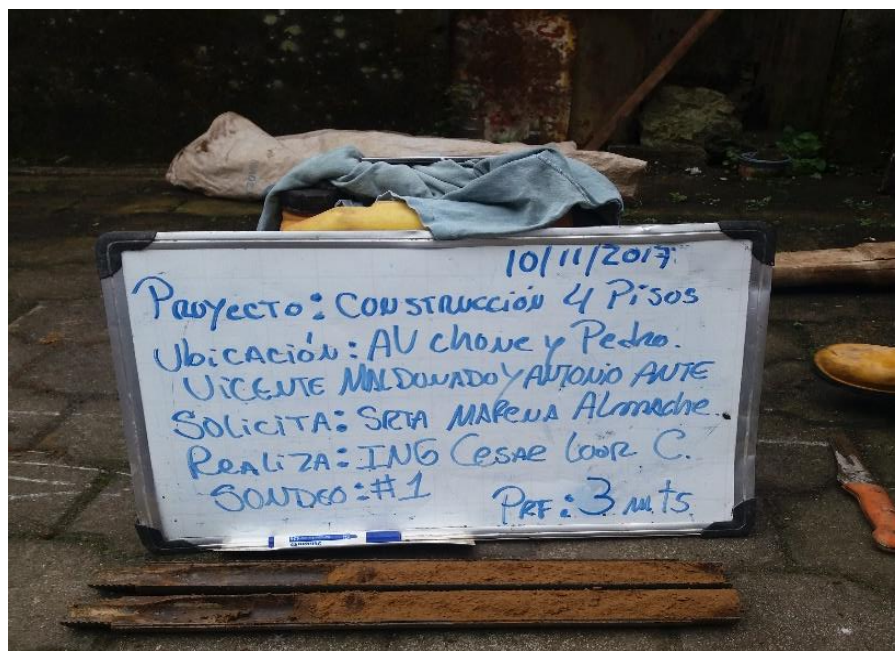 10/11/2017
PROYECTO: CONSTRUCCIÓN 4 PISOS
UBICACIÓN: AV CHONE y Pedro.
VICENTE MALDONADO Y ANTONIO ANTE
SOLICITA: SRTA MARENA Almache.
REALIZA: ING Cesae Loor C.
SONDEO: #1 PRF: 3 mts